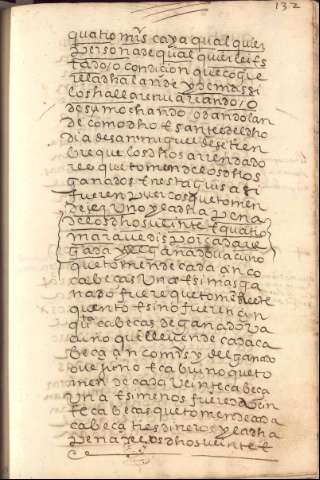 132
quatro mrs caya qual quier
persona de qual quier leys
tado / o condicion que coge
re la dha lande y demas si
los hallaren variando / o
desumochando o dando lan
de como dho es ante del dho
dia de san miguel de setien
bre que los dhos arrendado
res que tomen de los dhos
ganados
fueren puercos que tomen
de seys uno y ea dha pena
de los dhos veinte e quatro
maravedis por cada ve
gada y de ganado vacuno
que tomen de cada cinco
cabeças una e si mas ga
nado fuere que tomen
quento e si no fueren cin
co cabeças de ganado va
cuno que lleven de cada ca
beça cinco mrs y del ganado
ovejuno e cabruno que to
men de cada veinte cabeças
una e si menos fuere de vein
te cabeças que tomen de cada
cabeça tres dineros y ea dha
pena de los dhos veinte e